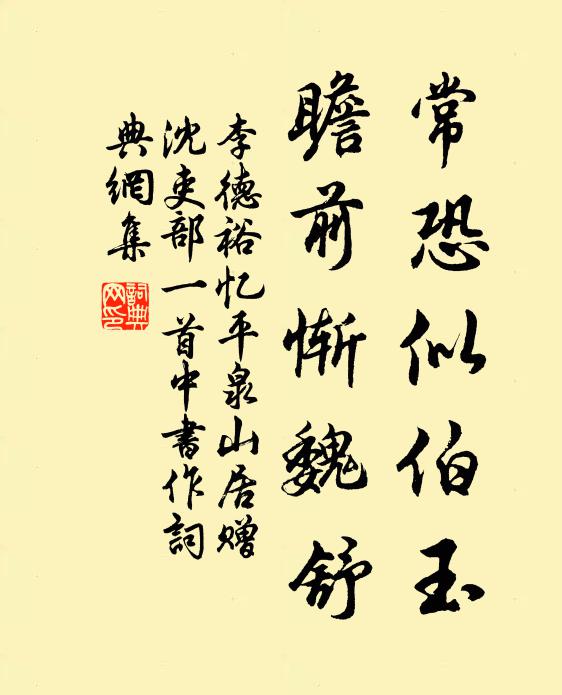 常恐似伯玉
瞻前惭魏舒
李德裕忆平泉山居赠
沈吏部一首中書作詞
典網集
詞典
网印